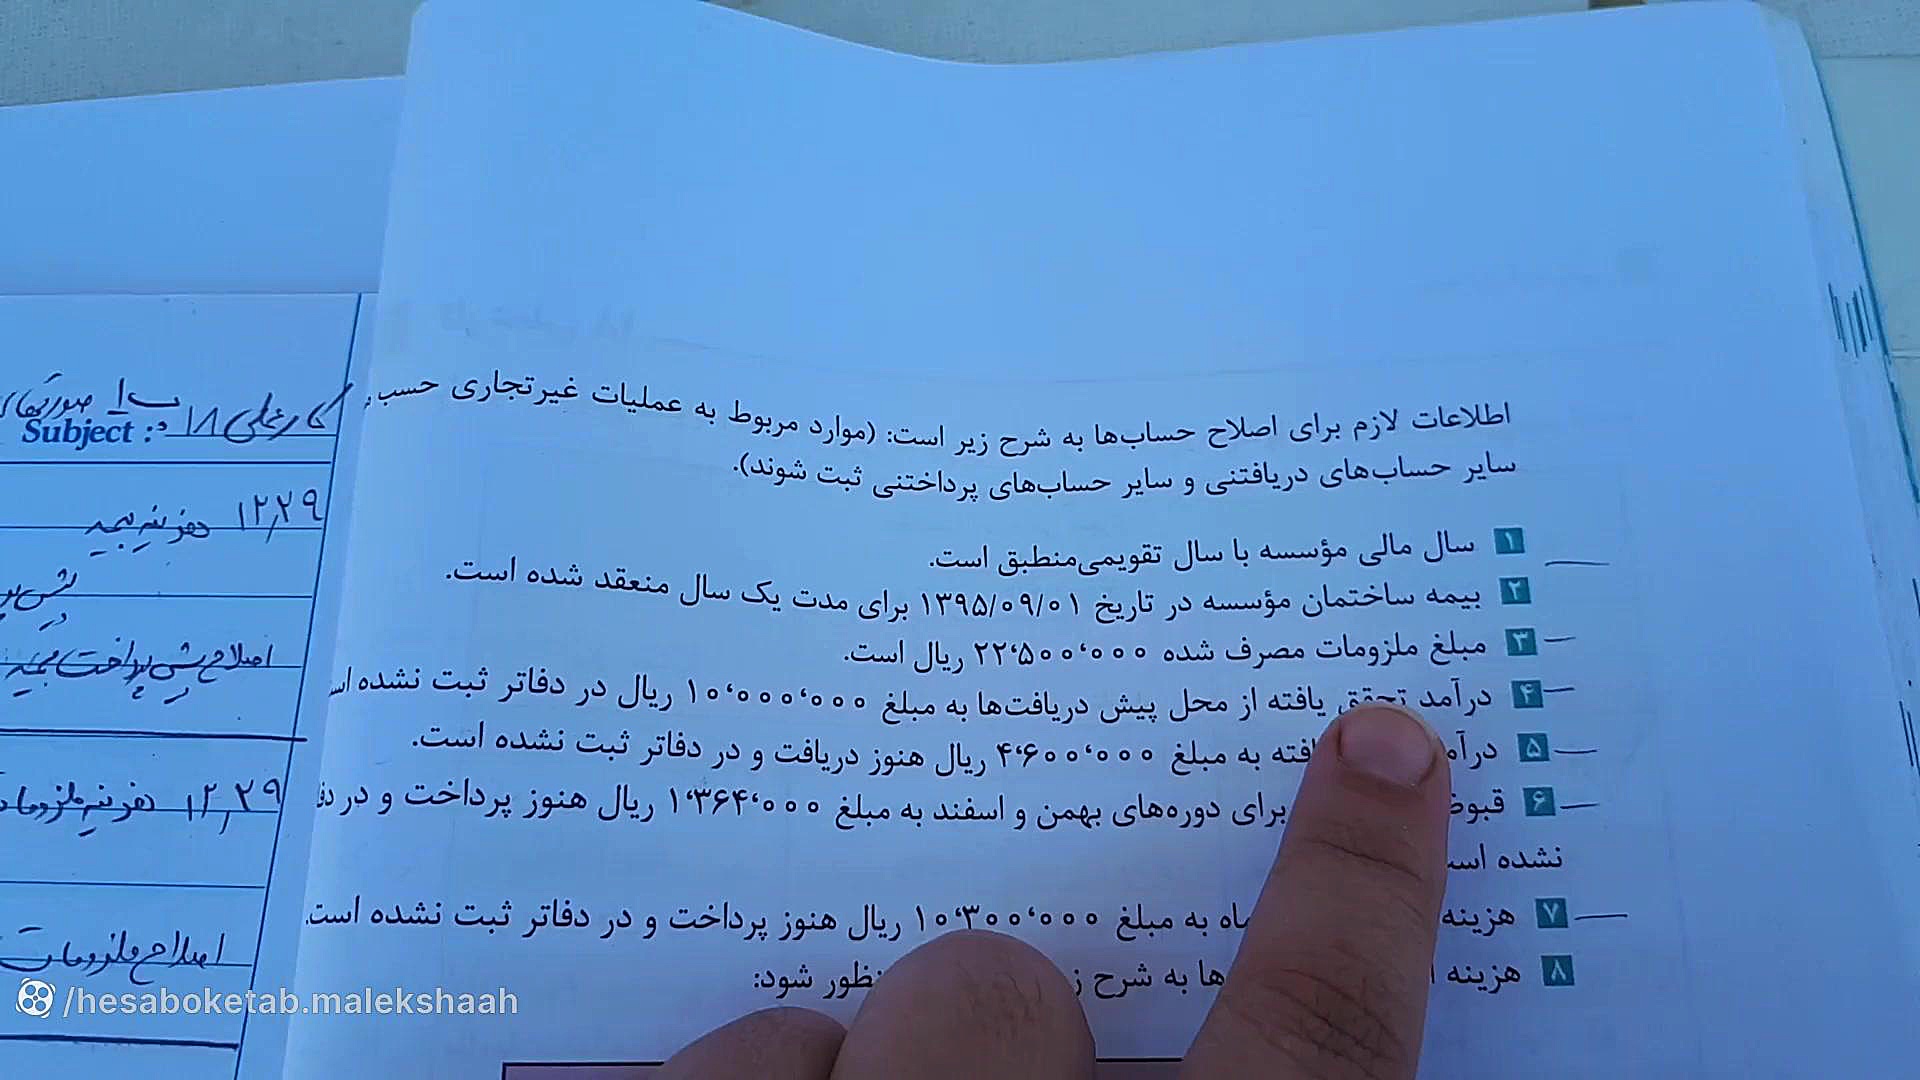 اطلاعات لازم برای اصلاح حساب‌ها به شرح زیر است: (موارد مربوط به عملیات غیرتجاری حسب
سایر حساب‌های دریافتنی و سایر حساب‌های پرداختنی ثبت شوند).
۱ سال مالی مؤسسه با سال تقویمی‌منطبق است.
۲ بیمه ساختمان مؤسسه در تاریخ ۱۳۹۵/۰۹/۰۱ برای مدت یک سال منعقد شده است.
۳ مبلغ ملزومات مصرف شده ۲۲٬۵۰۰٬۰۰۰ ریال است.
۴ درآمد تحقق یافته از محل پیش دریافت‌ها به مبلغ ۱۰٬۰۰۰٬۰۰۰ ریال در دفاتر ثبت نشده
۵ به مبلغ ۴٬۶۰۰٬۰۰۰ ریال هنوز دریافت و در دفاتر ثبت نشده است.
۶ برای دوره‌های بهمن و اسفند به مبلغ ۱٬۳۶۴٬۰۰۰ ریال هنوز پرداخت و در
نشده
۷ هزینه به مبلغ ۱۰٬۳۰۰٬۰۰۰ ریال هنوز پرداخت و در دفاتر ثبت نشده است.
۸ هزینه به شرح شود:
کارعملی ۱۸
Subject :
۱۲٫۲۹ هزینه بیمه
اصلاح پیش پرداخت بیمه
۱۲٫۲۹ هزینه ملزومات
اصلاح ملزومات
/hesaboketab.malekshaah